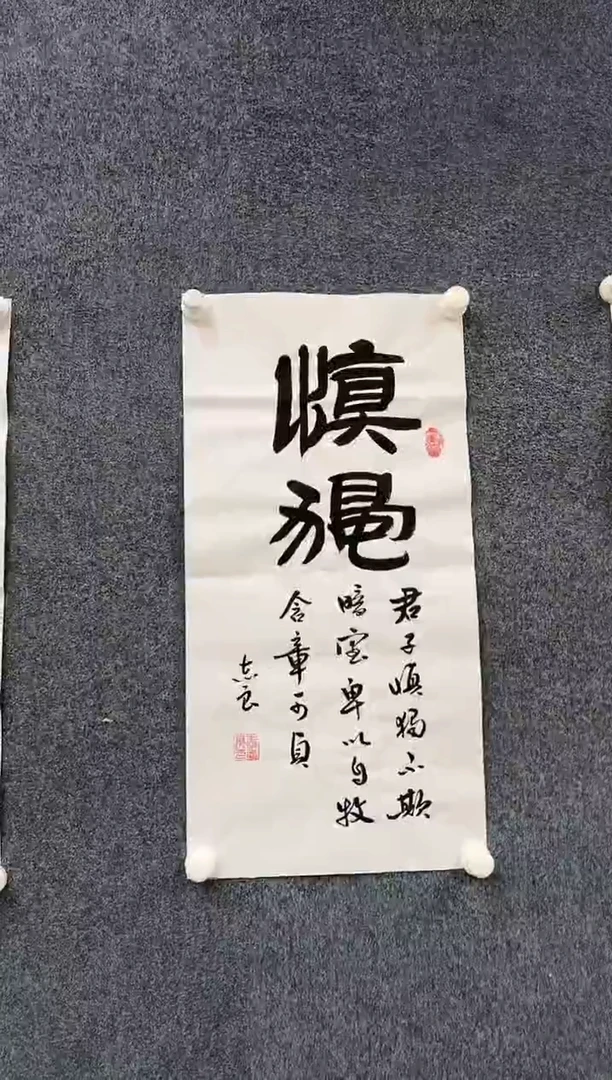 慎獨
君子慎獨不欺
暗室卑以自牧
含章可貞
志良